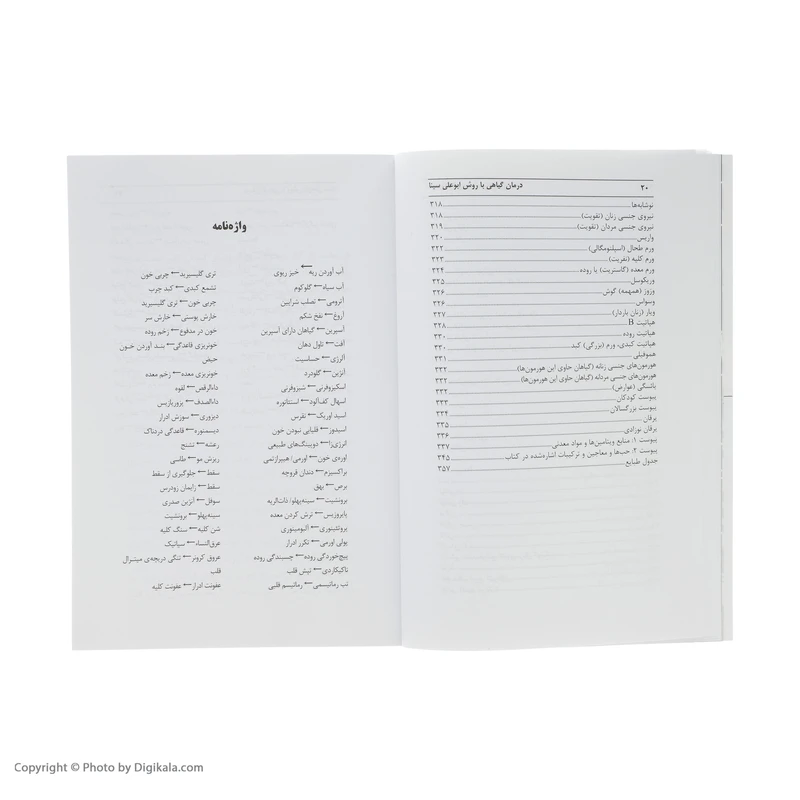 ۲۰ درمان گیاهی با روش ابوعلی سینا
نوشابه‌ها ۳۱۸
نیروی جنسی زنان (تقویت) ۳۱۸
نیروی جنسی مردان (تقویت) ۳۱۹
واریس ۳۲۰
ورم طحال (اسپلنومگالی) ۳۲۲
ورم کلیه (نفریت) ۳۲۳
ورم معده (گاستریت) یا روده ۳۲۴
وریکوسل ۳۲۵
وزوز (همهمه) گوش ۳۲۶
وسواس ۳۲۶
ویار (زنان باردار) ۳۲۷
هپاتیت B ۳۲۸
هپاتیت روده ۳۳۰
هپاتیت کبدی، ورم (بزرگی) کبد ۳۳۰
هموفیلی ۳۳۱
هورمون‌های جنسی زنانه (گیاهان حاوی این هورمون‌ها) ۳۳۲
هورمون‌های جنسی مردانه (گیاهان حاوی این هورمون‌ها) ۳۳۲
یائسگی (عوارض) ۳۳۲
یبوست کودکان ۳۳۳
یبوست بزرگسالان ۳۳۴
یرقان ۳۳۵
یرقان نوزادی ۳۳۶
پیوست ۱: منابع ویتامین‌ها و مواد معدنی ۳۳۷
پیوست ۲: حب‌ها و معاجین و ترکیبات اشاره‌شده در کتاب ۳۴۵
جدول طبایع ۳۵۷
واژه‌نامه
آب آوردن ریه ← خیز ریوی
آب سیاه ← گلوکوم
آترومی ← تصلب شرایین
آروغ ← نفخ شکم
آسپرین ← گیاهان دارای آسپرین
آفت ← تاول دهان
آلرژی ← حساسیت
آنژین ← گلودرد
اسکیزوفرنی ← شیزوفرنی
اسهال کف‌آلود ← استئاتوره
اسید اوریک ← نقرس
اسیدوز ← قلیایی نبودن خون
انرژی‌زا ← دوپینگ‌های طبیعی
اوره‌ی خون ← اورمی / هیپرازتمی
براکسیزم ← دندان قروچه
برص ← بهق
برونشیت ← سینه‌پهلو / ذات‌الریه
پایروزیس ← ترش کردن معده
پروتئینوری ← آلبومینوری
پولی اورمی ← تکرر ادرار
پیچ‌خوردگی روده ← چسبندگی روده
تاکیکاردی ← تپش قلب
تب رماتیسمی ← رماتیسم قلبی
تری گلیسیرید ← چربی خون
تشمع کبدی ← کبد چرب
چربی خون ← تری گلیسیرید
خارش پوستی ← خارش سر
خون در مدفوع ← زخم روده
خونریزی قاعدگی ← بند آوردن خون
حیض
خونریزی معده ← زخم معده
داءالرقص ← لقوه
داءالصدف ← پزوریازیس
دیزوری ← سوزش ادرار
دیسمنوره ← قاعدگی دردناک
رعشه ← تشنج
ریزش مو ← طاسی
سقط ← جلوگیری از سقط
سقط ← زایمان زودرس
سوفل ← آنژین صدری
سینه‌پهلو ← برونشیت
شن کلیه ← سنگ کلیه
عرق‌النساء ← سیاتیک
عروق کرونر ← تنگی دریچه‌ی میترال
قلب
عفونت ادرار ← عفونت کلیه
Copyright © Photo by Digikala.com